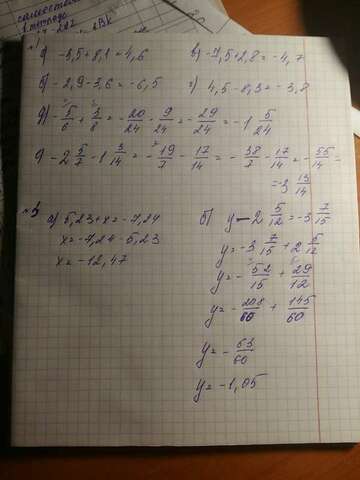 а) -3,5+8,1=4,6 в) -7,5+2,8=-4,7
б) -2,9-3,6=-6,5 г) 4,5-8,3=-3,8
д) -5/6+3/8=-20/24-9/24=-29/24=-1 5/24
е) -2 5/7-1 3/14=-19/7-17/14=-38/7-17/14=-55/14=
=-3 13/14
№3 а) 5,23+x=-7,24 б) y-2 5/12=-3 7/15
x=-7,24-5,23 y=-3 7/15+2 5/12
x=-12,47 y=-52/15+29/12
y=-208/60+145/60
y=-63/60
y=-1,05